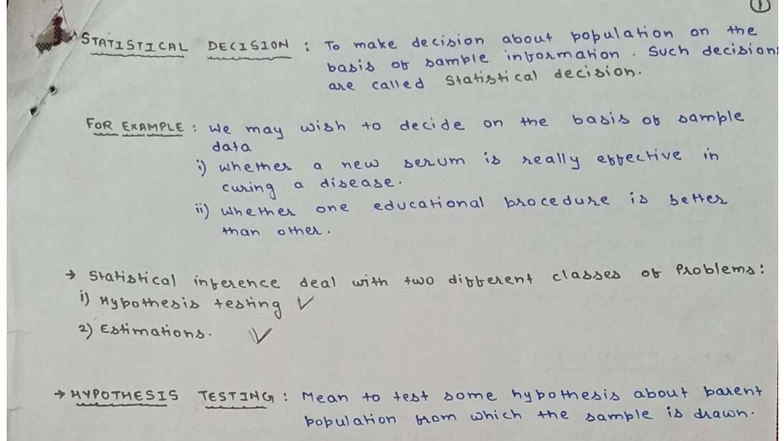 1
STATISTICAL DECISION : To make decision about population on the
basis of sample information. Such decisions
are called Statistical decision.
FOR EXAMPLE : We may wish to decide on the basis of sample
data
i) whether a new serum is really effective in
curing a disease.
ii) whether one educational procedure is better
than other.
→ Statistical inference deal with two different classes of Problems :
1) Hypothesis testing ✓
2) Estimations. ✓
→ HYPOTHESIS TESTING : Mean to test some hypothesis about parent
population from which the sample is drawn.